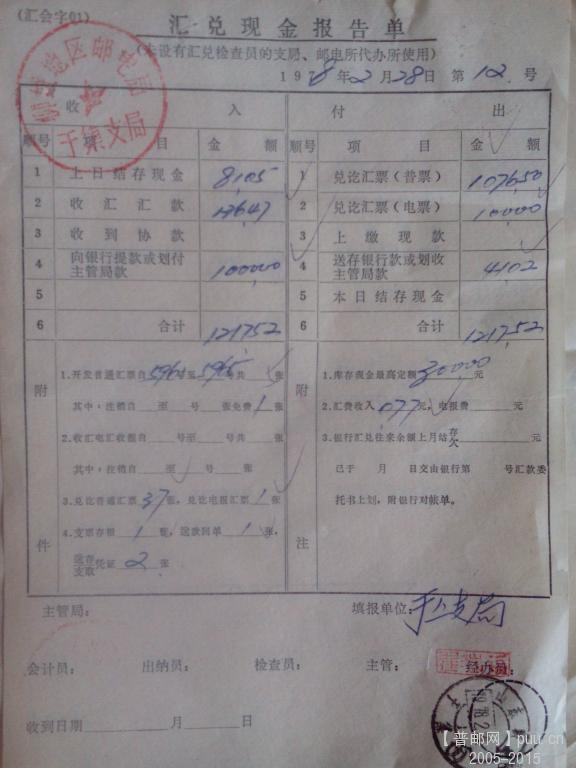 (汇会字01)
汇兑现金报告单
(未设有汇兑检查员的支局、邮电所代办所使用)
年2月28日 第12号
区邮电局
于集支局
收入 付出
顺号 项目 金额 顺号 项目 金额
1 上日结存现金 8,105 1 兑讫汇票(普票) 107650
2 收汇汇款 13647 2 兑讫汇票(电票) 10,000
3 收到协款 3 上缴现款
4 向银行提款或划付主管局款 100000 4 送存银行款或划收主管局款 4102
5 5 本日结存现金
6 合计 121752 6 合计 121752
附件
1.开发普通汇票自5961号至5965号共5张
其中:注销自 至 号 张免费1张
2.收汇电汇收据自 号至 号共 张
其中:注销自 至 号 张
3.兑讫普通汇票37张,兑讫电报汇票1张
4.支票存根1张,送款回单1张,
送存支取凭证2张
附注
1.库存现金最高定额30000元
2.汇费收入077元,电报费 元
3.银行汇兑往来余额上月结存欠 元
已于 月 日交由银行第 号汇款委
托书上划,附银行对帐单。
主管局: 填报单位: 支局
会计员: 出纳员: 检查员: 主管: 经办员:
收到日期 年 月 日
【普邮网】puu.cn
2005-2015